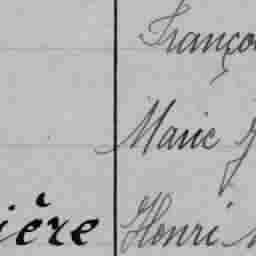 Franço
Marie J
ière Henri